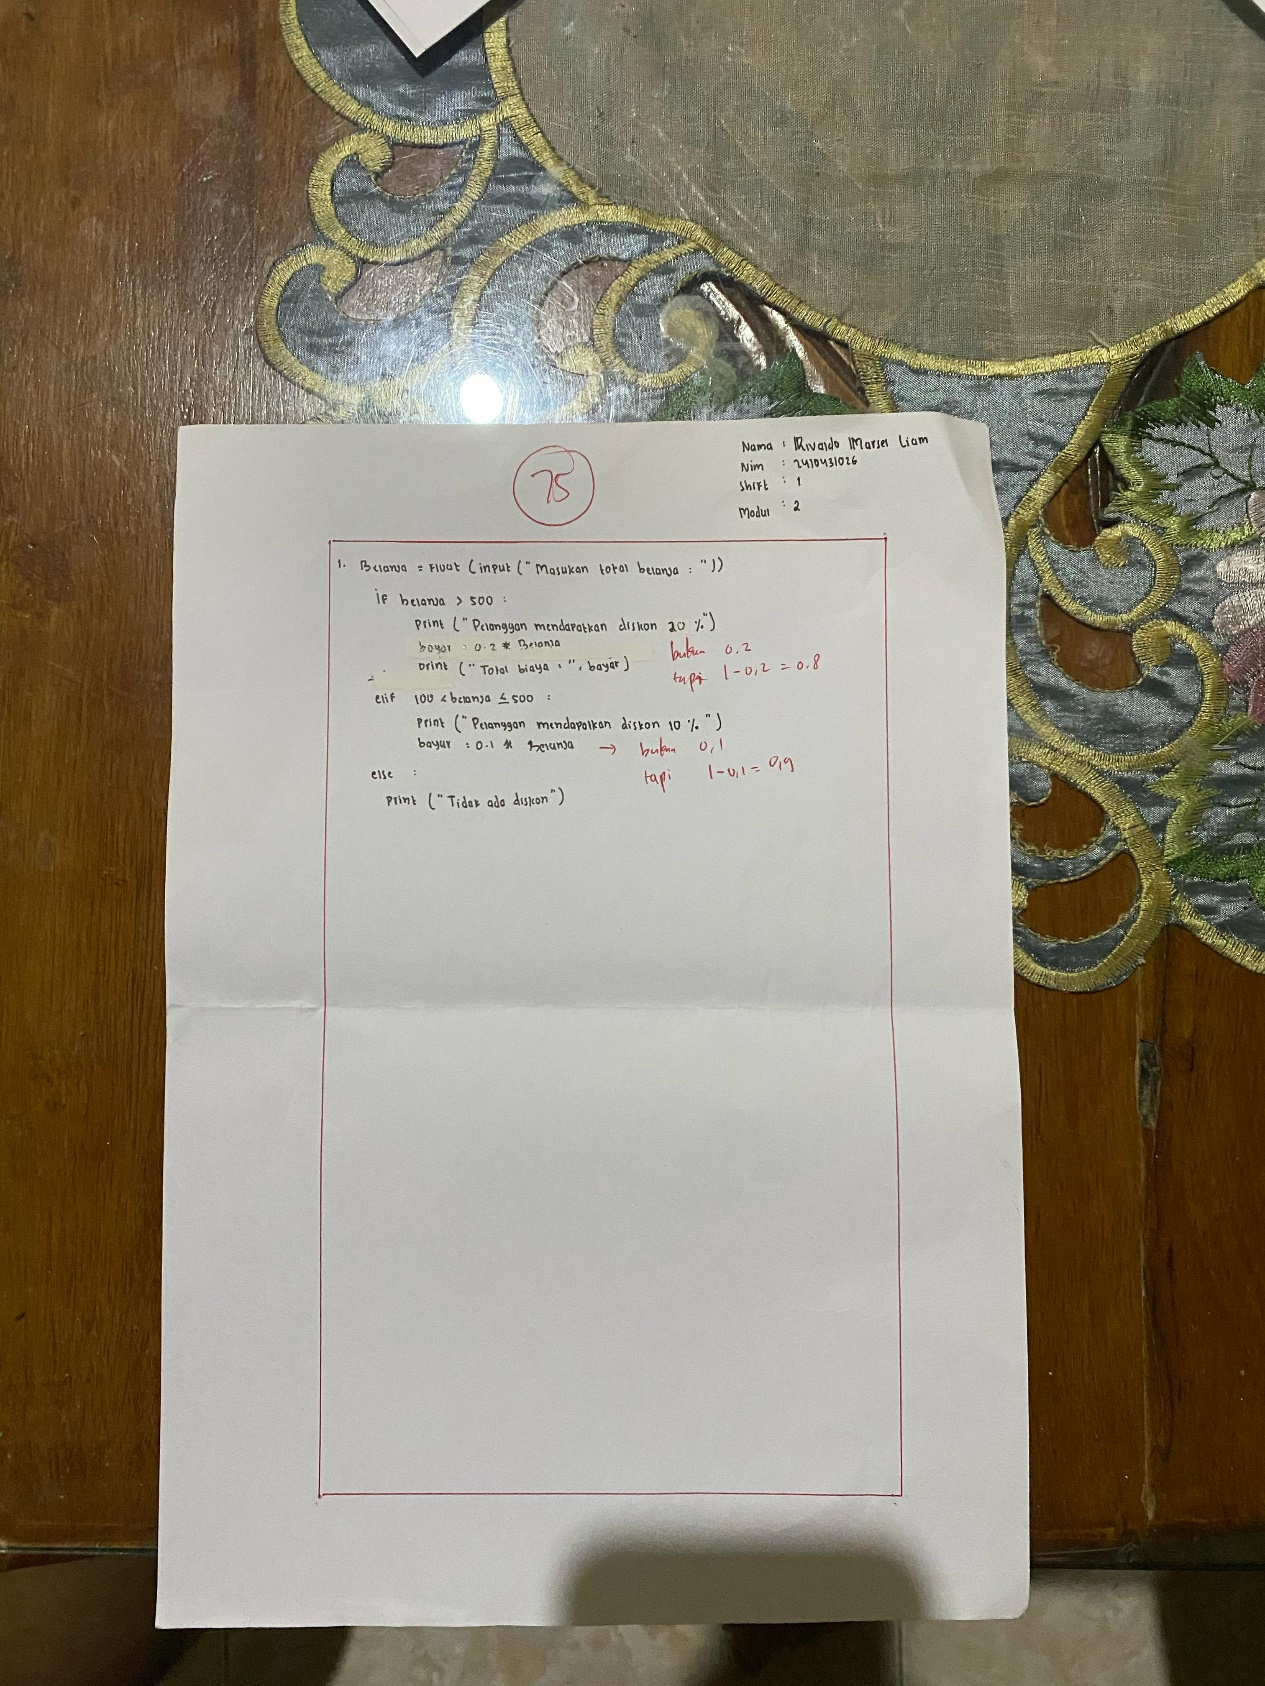 75
Nama : Rivaldo Marsel Liam
Nim : 2410431026
Shift : 1
Modul : 2
1. Belanja = Float (input ("Masukan total belanja : "))
if belanja > 500 :
print ("Pelanggan mendapatkan diskon 20 %")
bayar = 0.2 * Belanja
bukan 0.2
print ("Total biaya : ", bayar)
tapi 1-0,2 = 0.8
elif 100 < belanja ≤ 500 :
print ("Pelanggan mendapatkan diskon 10 %")
bayar = 0.1 * Belanja → bukan 0,1
tapi 1-0,1 = 0,9
else :
print ("Tidak ada diskon")